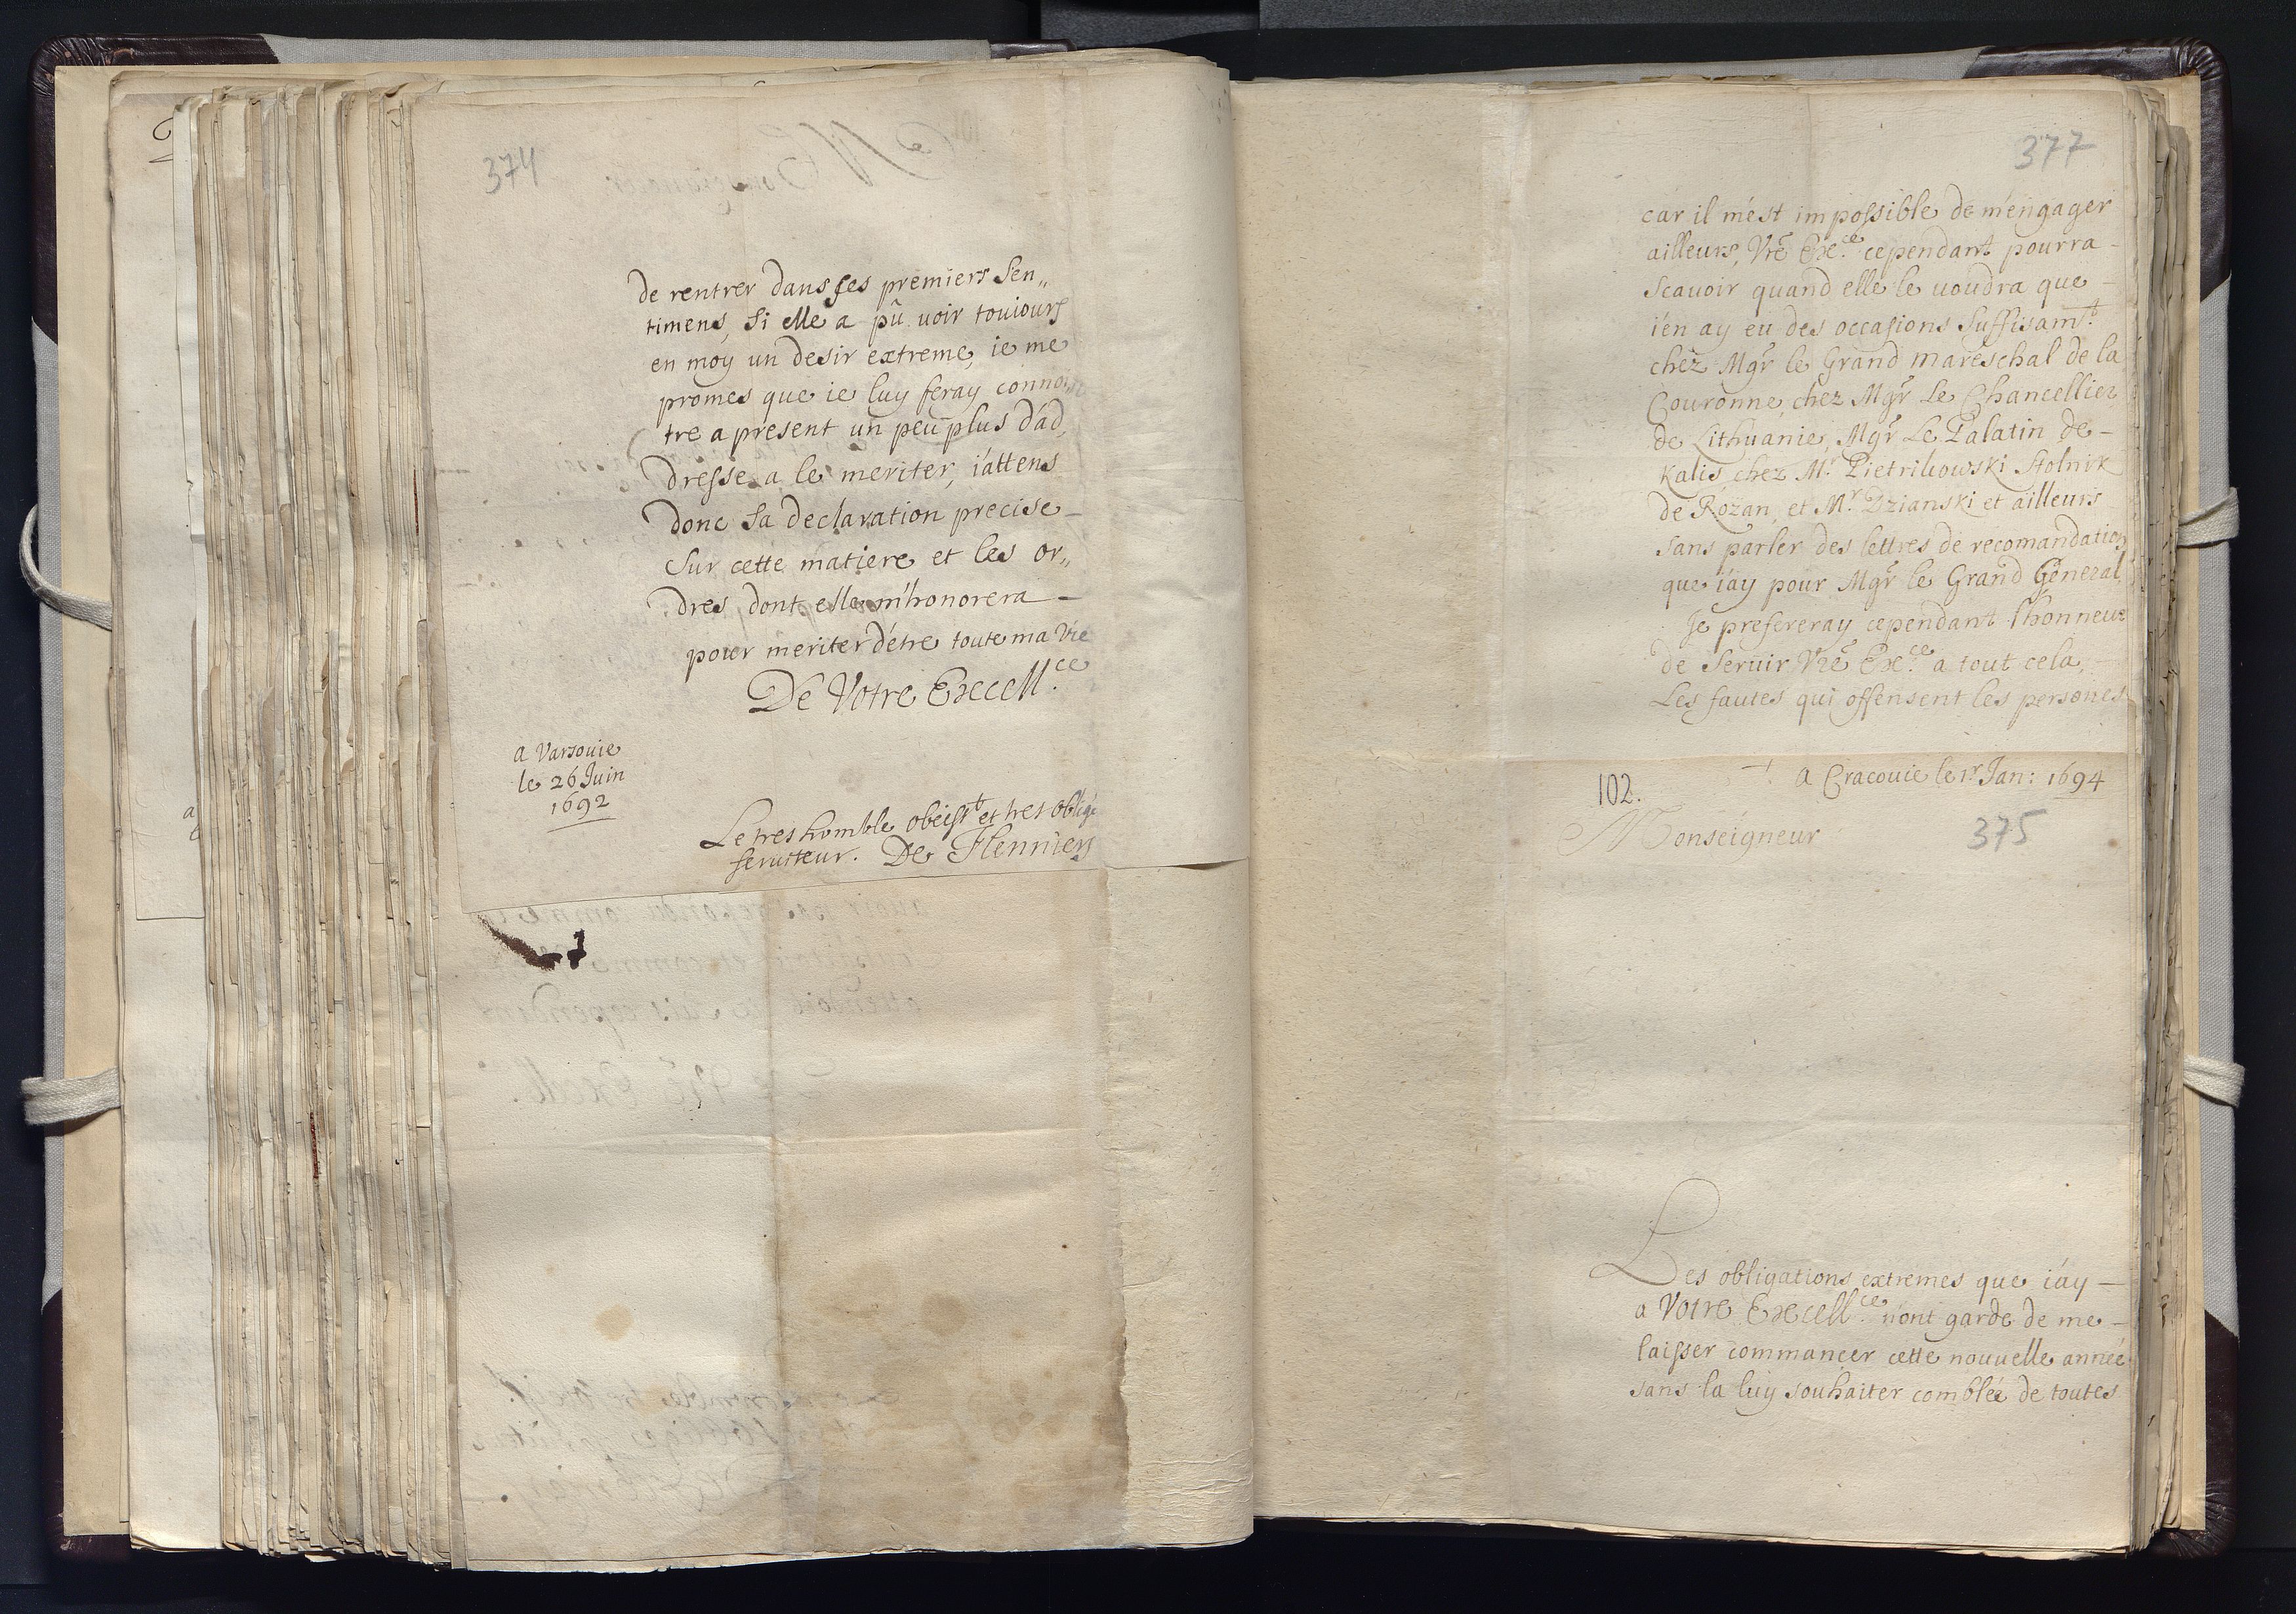 374
de rentrer dans ses premiers sen„
timens, si elle a pû voir touiours
en moy un desir extreme, ie me
promes que ie luy feray connoi
tre a present un peu plus d'ad,
dresse a le meriter, i'attens
donc sa declaration precise –
sur cette matiere et les or„
dres dont elle m'honorera –
pour meriter d'étre toute ma vie
De Votre Excell.ce
a Varsovie
le 26 Juin
1692
Le tres humble obeisst et tres obligé
serviteur. De Flenniers
377
car il m'est impossible de m'engager
ailleurs, Vrē Exce. cependant pourra –
scavoir quand elle le voudra que –
i'en ay eu des occasions suffisamt.
chez Mgr le Grand mareschal de la
Couronne, chez Mgr Le Chancellier
de Lithuanie, Mgr Le Palatin de –
Kalis chez Mr. Pietrikowski Stolnik
de Rozan, et Mr. Dzianski et ailleurs
sans parler des lettres de recomandation
que i'ay pour Mgr le Grand General,
Je prefereray cependant l'honneur
de servir Vrē Exce. a tout cela, –
Les fautes qui offensent les persones
102.
a Cracovie le 1r Jan: 1694
Monseigneur
375
Les obligations extremes que i'ay –
a Votre Excell.ce n'ont garde de me –
laisser commancer cette nouvelle année
sans la luy souhaiter comblée de toutes